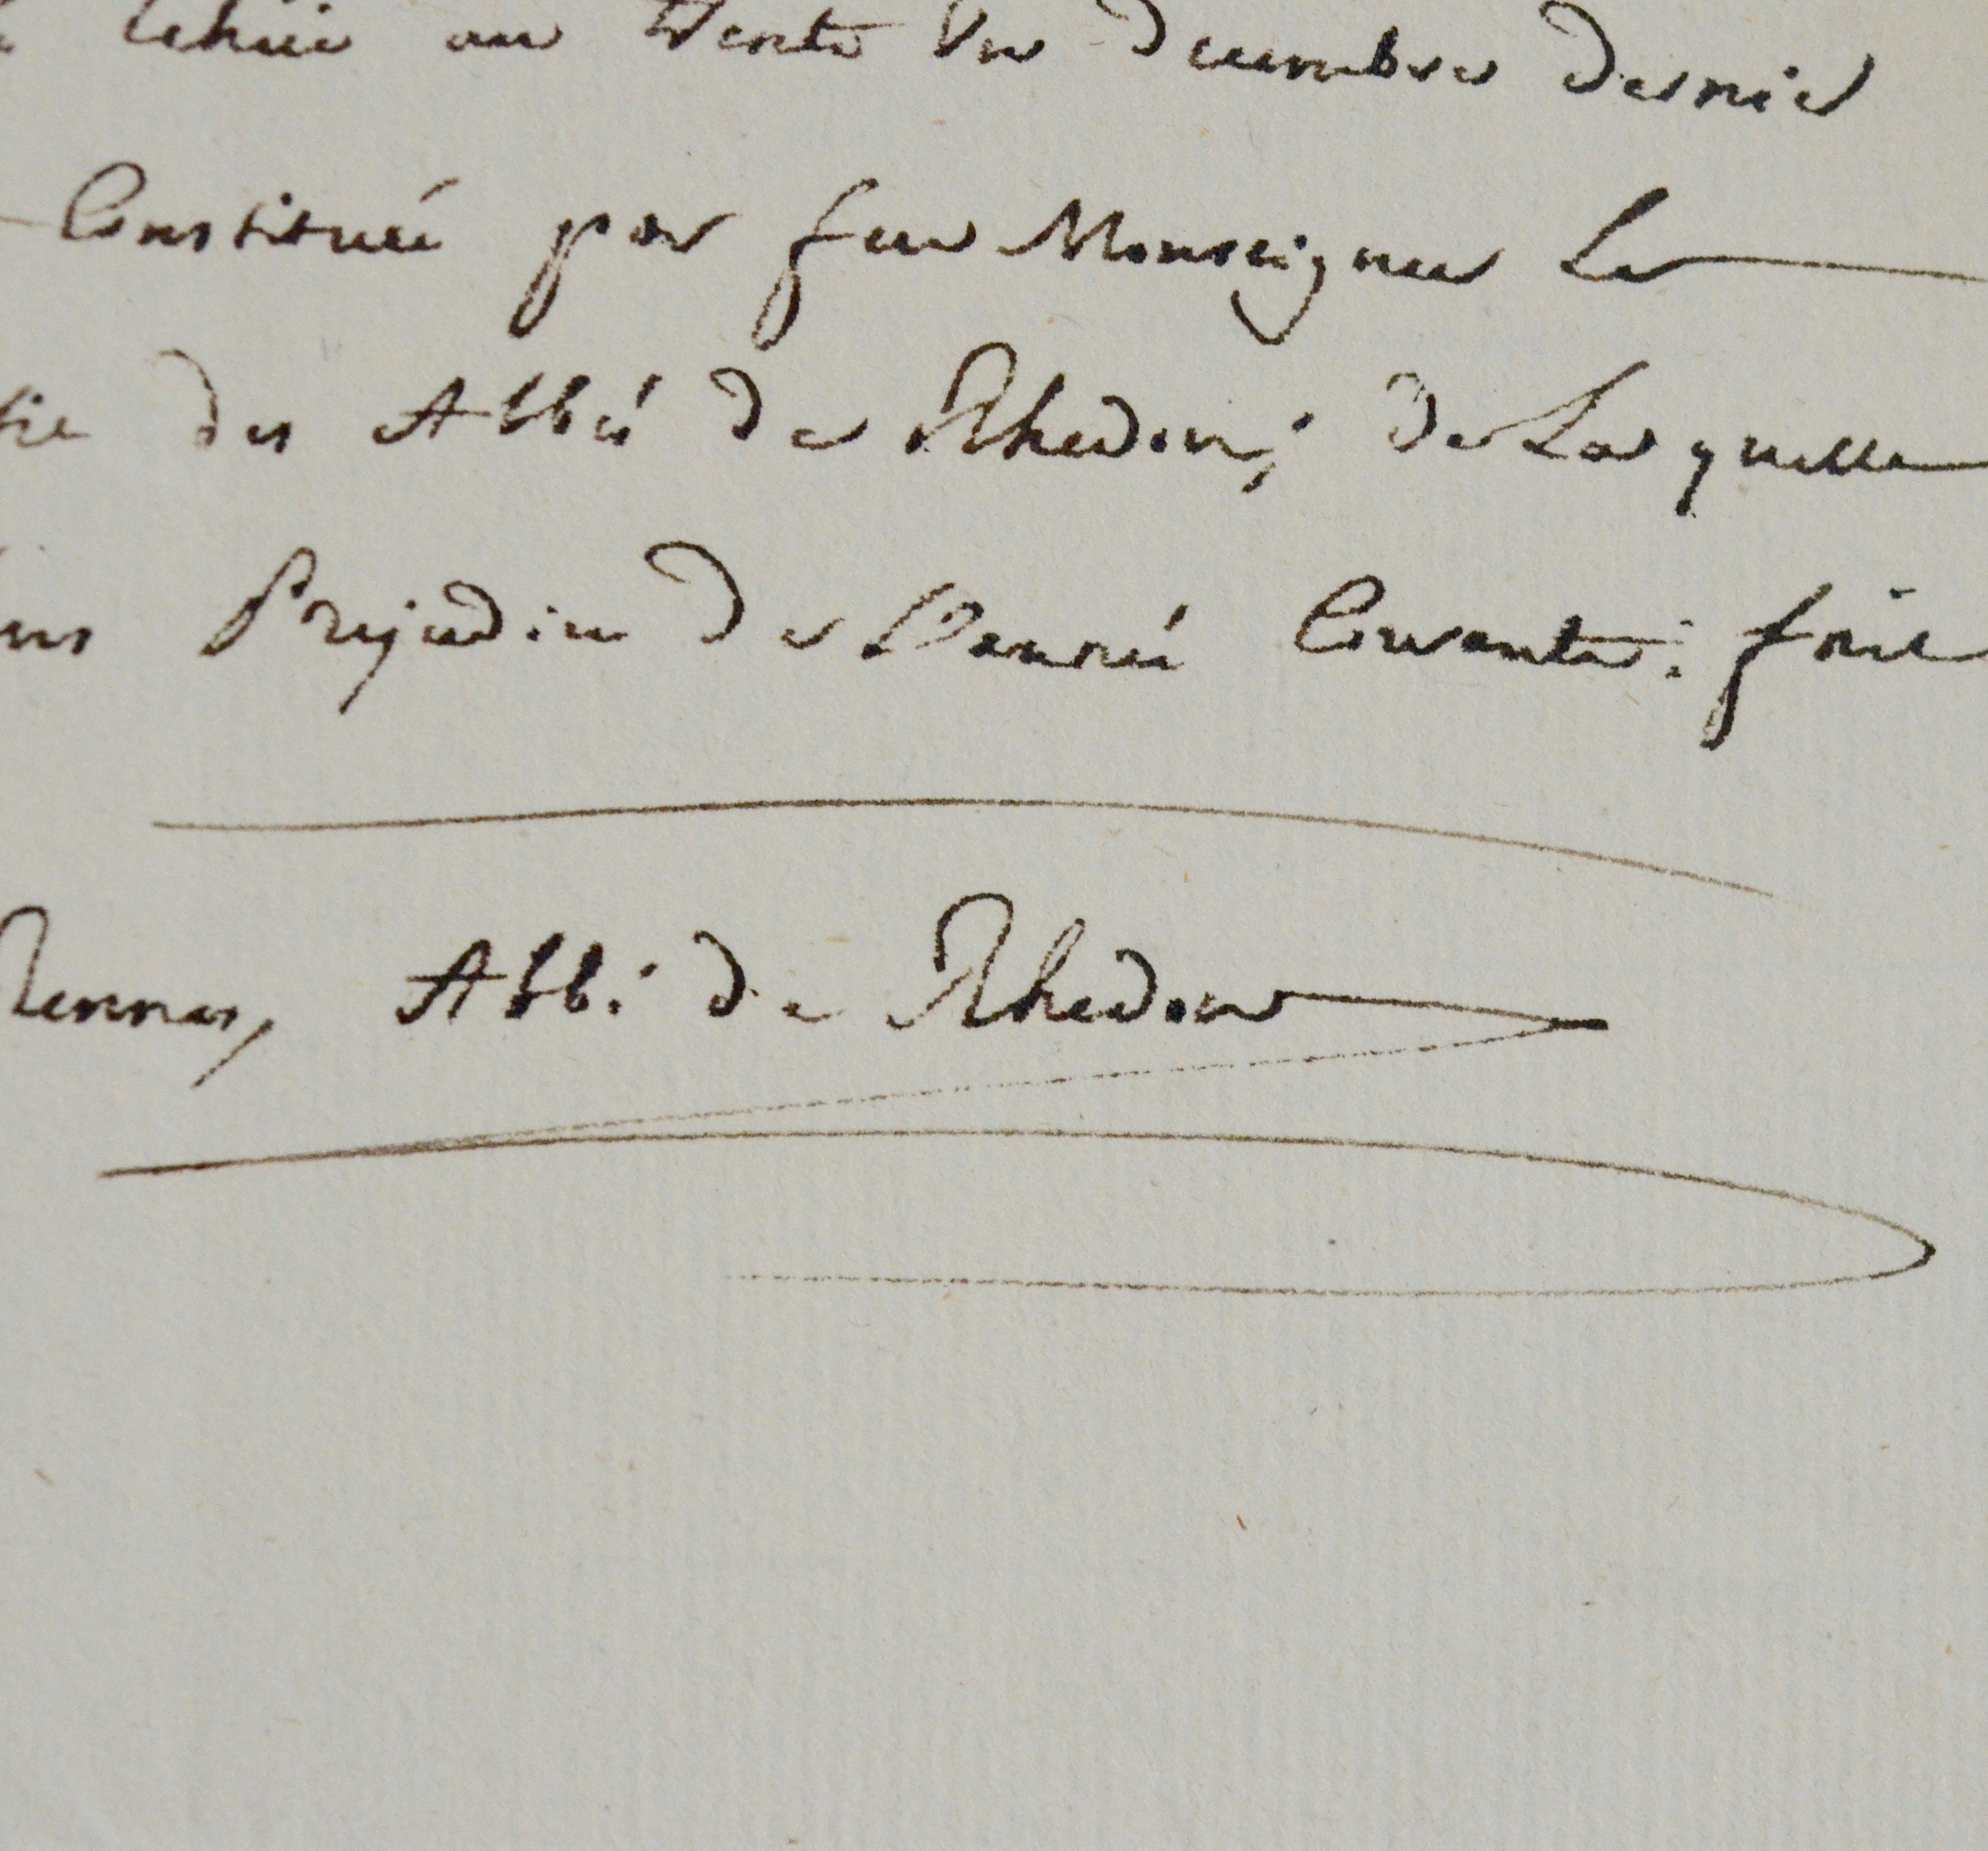 Echüe au trente un decembre dernier
Constituée par feu Monseigneur Le
des Abbés de Rhedon; de Laquelle
Prejudice de L'année Courante: fait
Rennes, Abbé de Rhedon